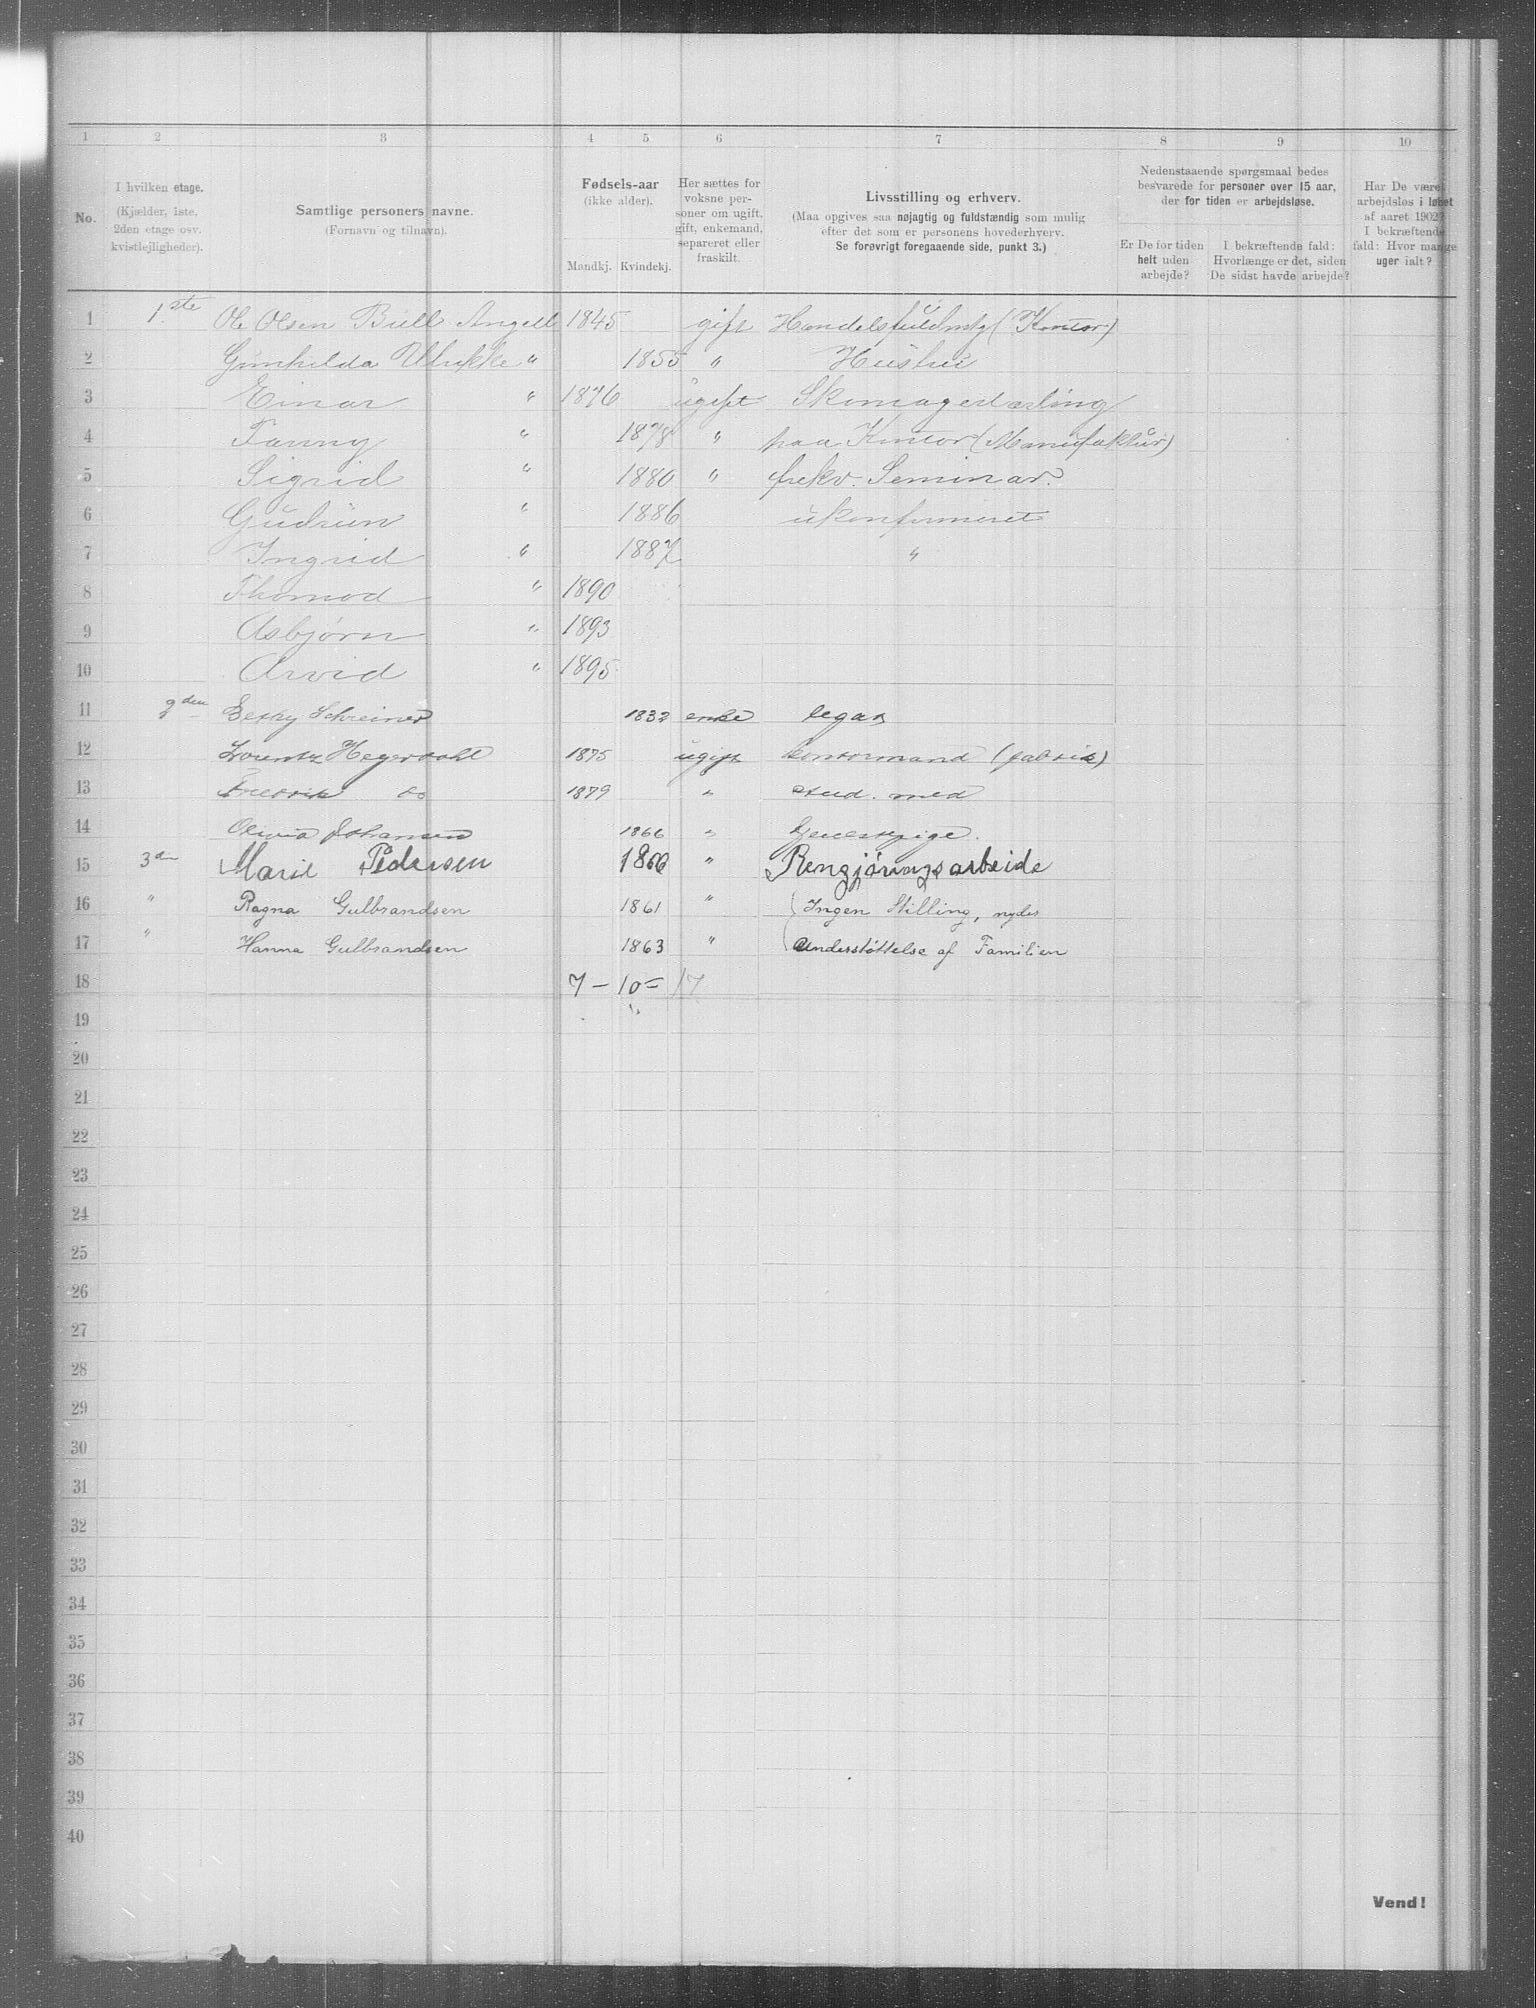 1 2 3 4 5 6 7 8 9 10
No.
I hvilken etage.
(Kjælder, 1ste,
2den etage osv.
kvistlejligheder).
Samtlige personers navne.
(Fornavn og tilnavn).
Fødsels-aar
(ikke alder).
Mandkj. Kvindekj.
Her sættes for
voksne per-
soner om ugift,
gift, enkemand,
separeret eller
fraskilt.
Livsstilling og erhverv.
(Maa opgives saa nøjagtig og fuldstændig som mulig
efter det som er personens hovederhverv.
Se forøvrigt foregaaende side, punkt 3.)
Nedenstaaende spørgsmaal bedes
besvarede for personer over 15 aar,
der for tiden er arbejdsløse.
Er De for tiden
helt uden
arbejde?
I bekræftende fald:
Hvorlænge er det, siden
De sidst havde arbejde?
Har De været
arbejdsløs i løbet
af aaret 1902?
I bekræftende
fald: Hvor mange
uger ialt?
1 1ste Ole Olsen Bull Angell 1845 gift Handelsfuldmtg (Kontor)
2 Gunhilda Ulrikke " 1855 " Hustru
3 Einar " 1876 ugift Skomagerlærling
4 Fanny " 1878 " paa Kontor (Manufaktur)
5 Sigrid " 1880 " frekv. Seminar.
6 Gudrun " 1886 ukonfirmeret
7 Ingrid " 1887 "
8 Thormod " 1890
9 Asbjørn " 1893
10 Arvid " 1895
11 2den Betzy Schreiner 1832 enke legat
12 Lorentz Hegerdahl 1875 ugift kontormand (fabrik)
13 Fredrik do 1879 " stud. med
14 Olivia Johansen 1866 " tjenestepige.
15 3die Marie Pedersen 1866 " Rengjøringsarbeide
16 " Ragna Gulbrandsen 1861 " Ingen Stilling, nyder
17 " Hanna Gulbrandsen 1863 " Understøttelse af Familien
18 7 – 10 = 17
19
20
21
22
23
24
25
26
27
28
29
30
31
32
33
34
35
36
37
38
39
40
Vend!